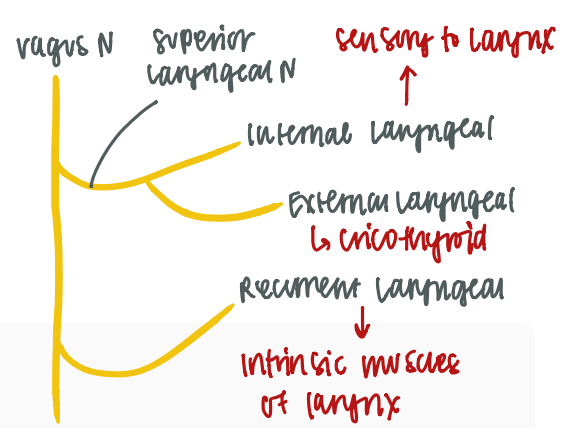 vagus N
superior
laryngeal N
sensory to larynx
Internal laryngeal
External laryngeal
↳ cricothyroid
Recurrent laryngeal
intrinsic muscles
of larynx